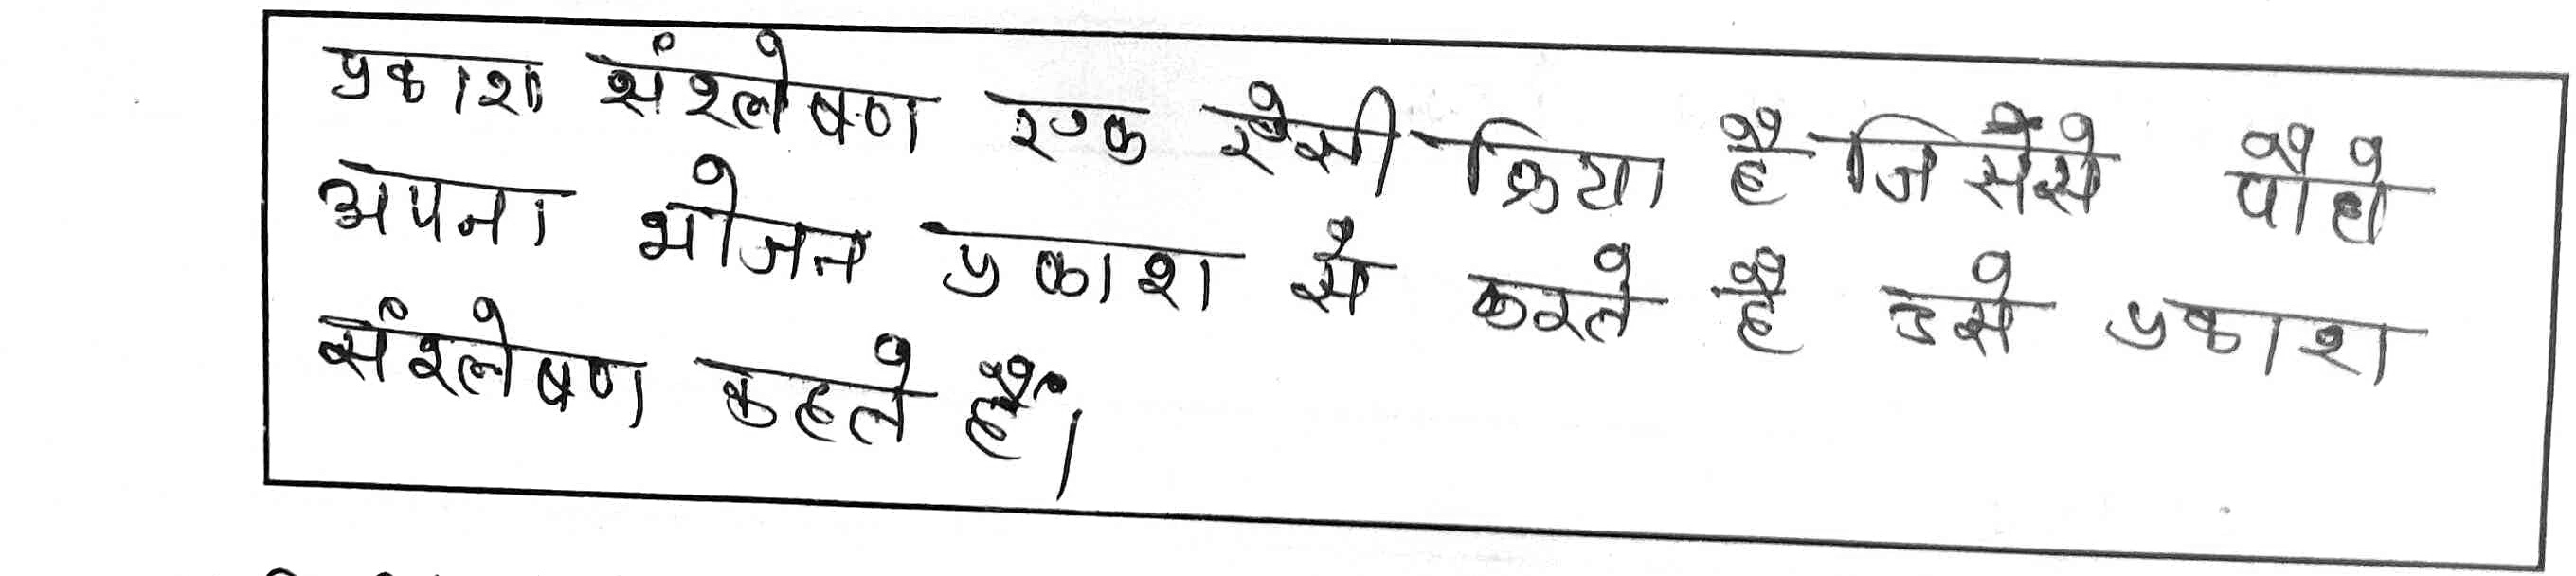 प्रकाश संश्लेषण एक ऐसी क्रिया है जिससे पौधे
अपना भोजन प्रकाश से करते है उसे प्रकाश
संश्लेषण कहते हैं।